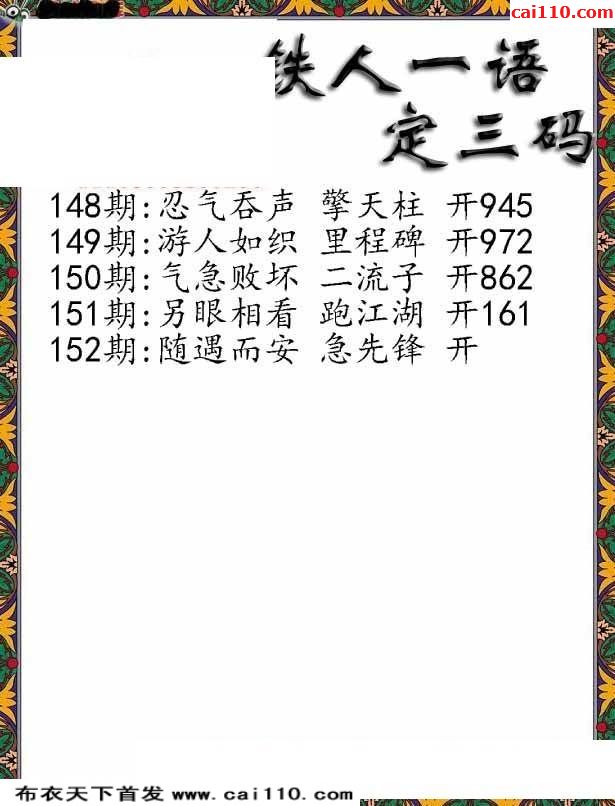 cai110.com
铁人一语
定三码
148期:忍气吞声 擎天柱 开945
149期:游人如织 里程碑 开972
150期:气急败坏 二流子 开862
151期:另眼相看 跑江湖 开161
152期:随遇而安 急先锋 开
布衣天下首发 www.cai110.com